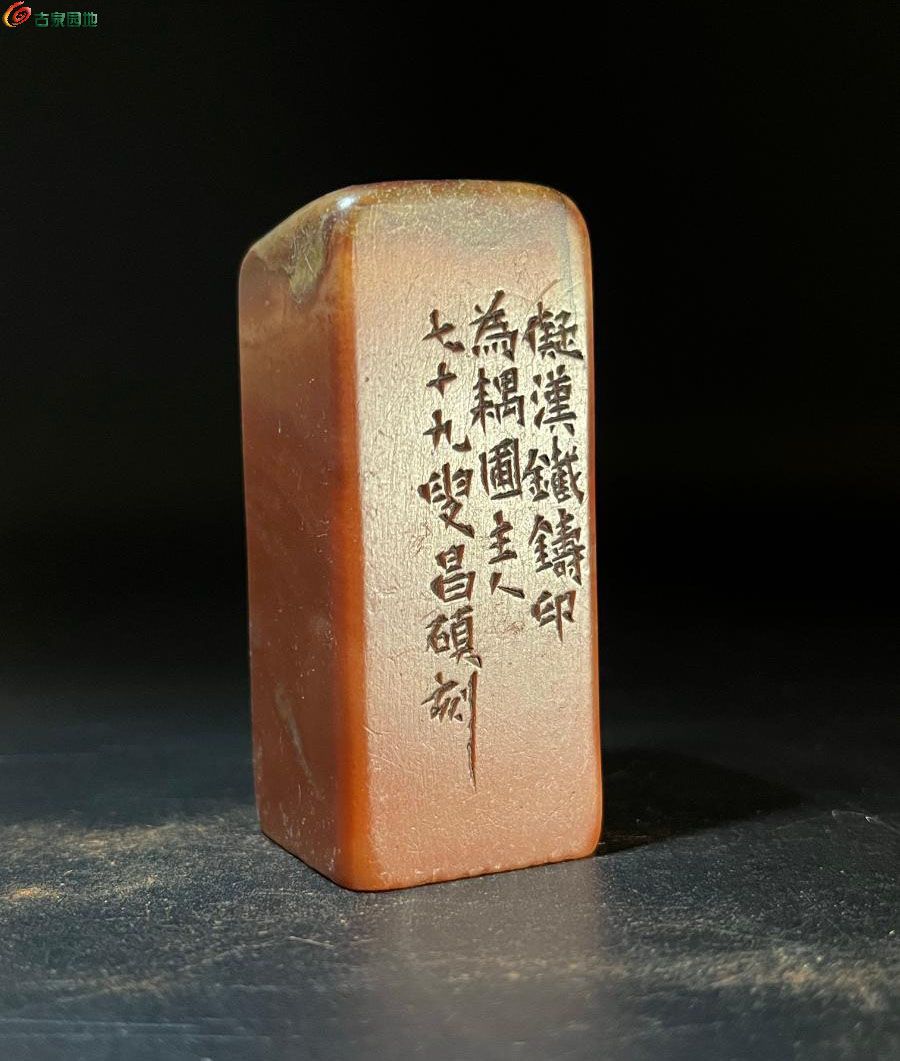 古泉园地
擬漢鐵鑄印
為耦圃主人
七十九叟昌碩刻